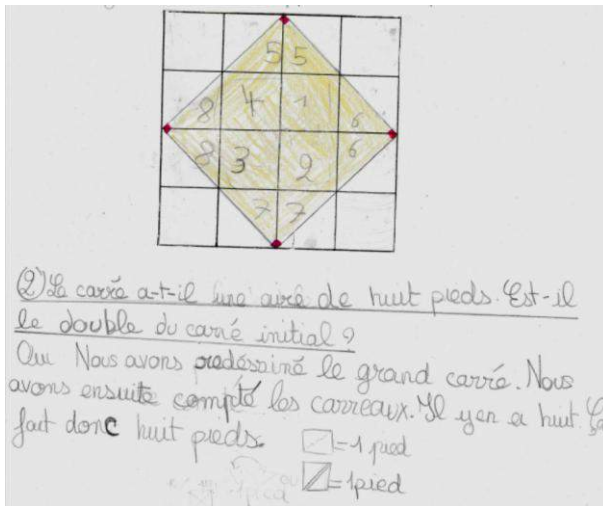 5 5
8 4 1 6
8 3 2 6
7 7
② Le carré a-t-il une aire de huit pieds. Est-il
le double du carré initial ?
Oui Nous avons redéssiné le grand carré. Nous
avons ensuite compté les carreaux. Il y en a huit. Ça
fait donc huit pieds.
= 1 pied
= 1pied